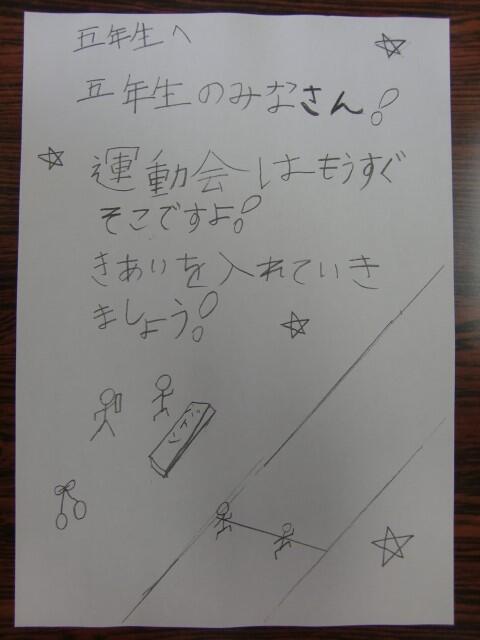 五年生へ
五年生のみなさん!
運動会はもうすぐ
そこですよ!
きあいを入れていき
ましょう!
バトン